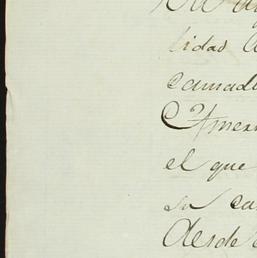 lidad
camad
Amer
el que
su ca
Desde